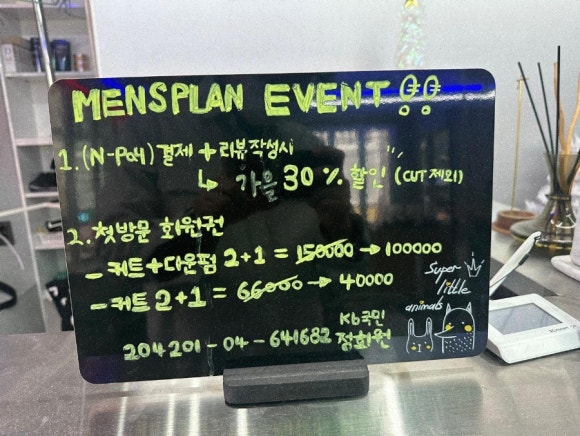 MENSPLAN EVENT !!
1. (N-Pay) 결제 + 리뷰작성시
↳ 가을 30 % 할인 (CUT 제외)
2. 첫방문 회원권
- 커트+다운펌 2+1 = 150000 → 100000
- 커트 2+1 = 66000 → 40000
204201-04-641682 Kb국민 점화원
Super little animals